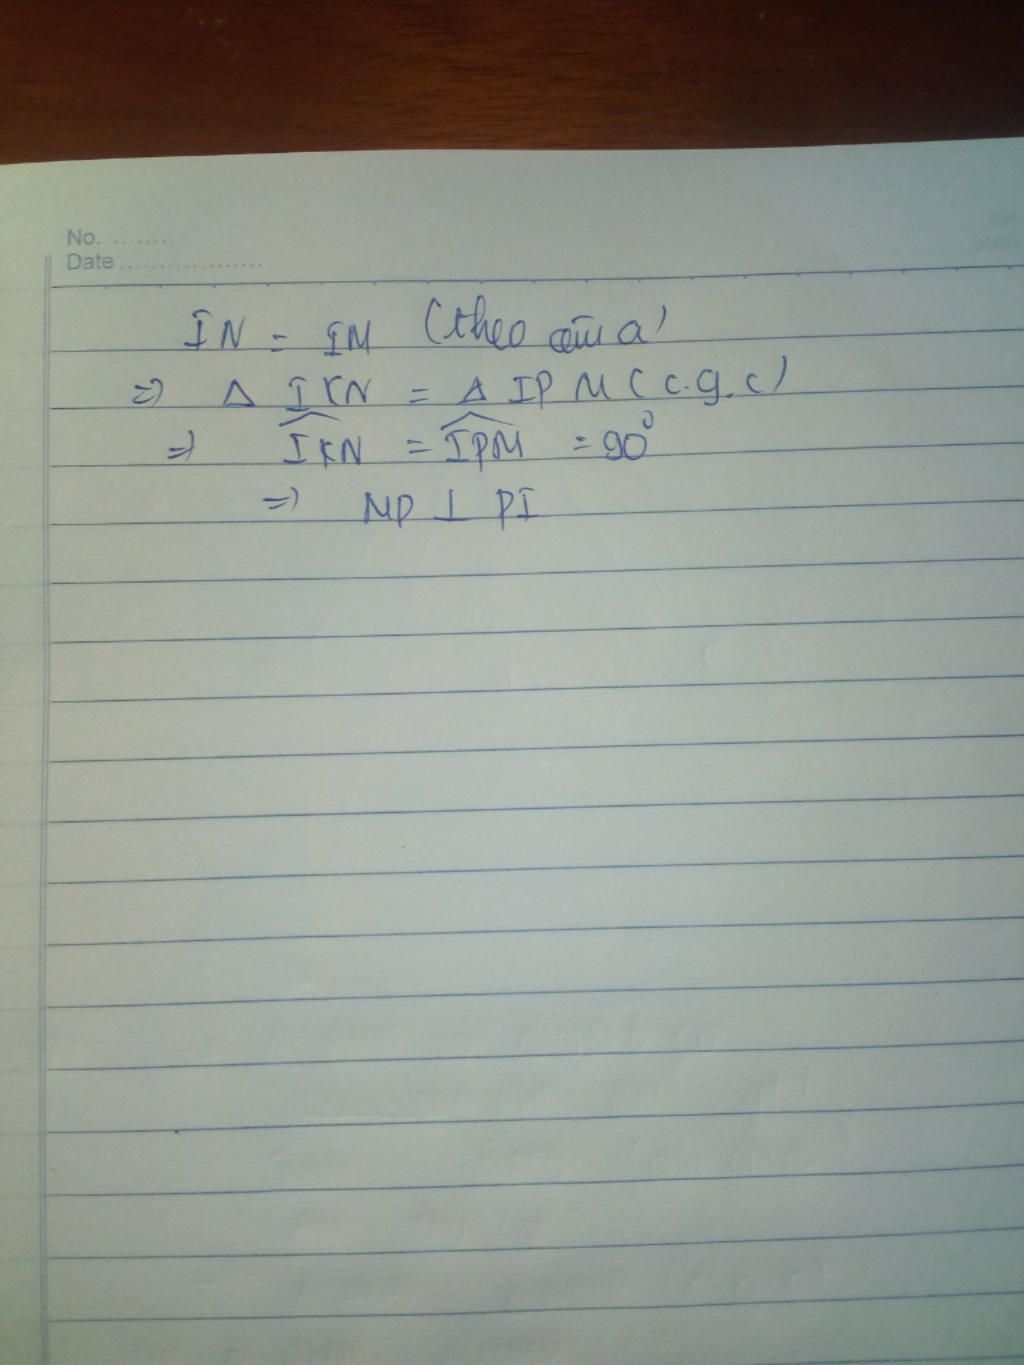 No. ........
Date ..................
IN = IM (theo câu a)
=> Δ IKN = Δ IPM (c.g.c)
=> \widehat{IKN} = \widehat{IPM} = 90°
=> MP ⊥ PI